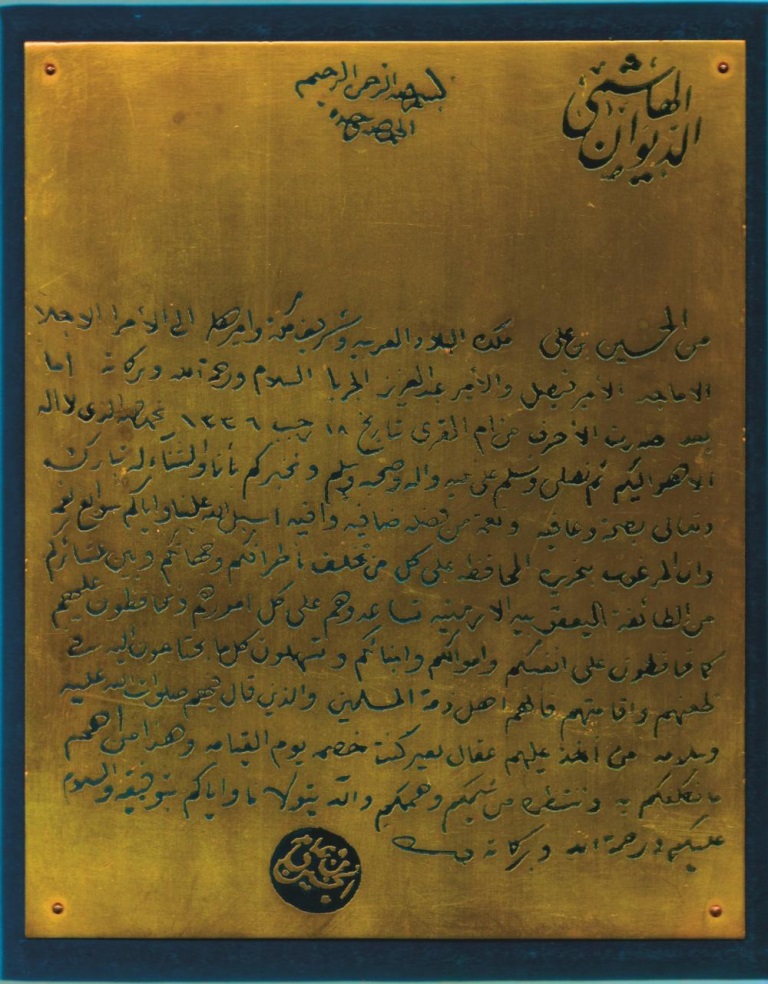 الديوان الهاشمي
بسم الله الرحمن الرحيم
الحمد لله وحده
من الحسين بن علي ملك البلاد العربيه وشريف مكة واميرها الى الأمرا الاجلا
الاماجد الأمير فيصل والأمير عبدالعزيز الجربا السلام ورحمة الله وبركاته اما
بعد صدرت الأحرف من ام القرى تاريخ ١٨ رجب ١٣٣٦ نحمد الله الذي لا اله
الا هو اليكم ثم نصلى ونسلم على نبيه واله وصحبه وسلم ونخبركم بأنا والثناء له تبارك
وتعالى بصحة وعافيه ونعمة من فضله صافيه وافيه اسبل الله علينا واياكم سوابغ نعمه
وان المرغوب بتحريره المحافظه على كل من تخلف بأطرافكم وجهاتكم وبين عشائركم
من الطائفة اليعقوبيه الارمنيه تساعدوهم على كل امورهم وتحافظون عليهم
كما تحافظون على انفسكم واموالكم وابنائكم وتسهلون كل ما يحتاجون اليه في
ظعنهم واقامتهم فانهم اهل ذمة المسلمين والذين قال فيهم صلوات الله عليه
وسلامه من اخذ عليهم عقال بعير كنت خصمه يوم القيامه وهذا من اهم
ما نكلفكم به وننتظره من شيمكم وهممكم والله يتولانا واياكم بتوفيقه والسلام
عليكم ورحمة الله وبركاته